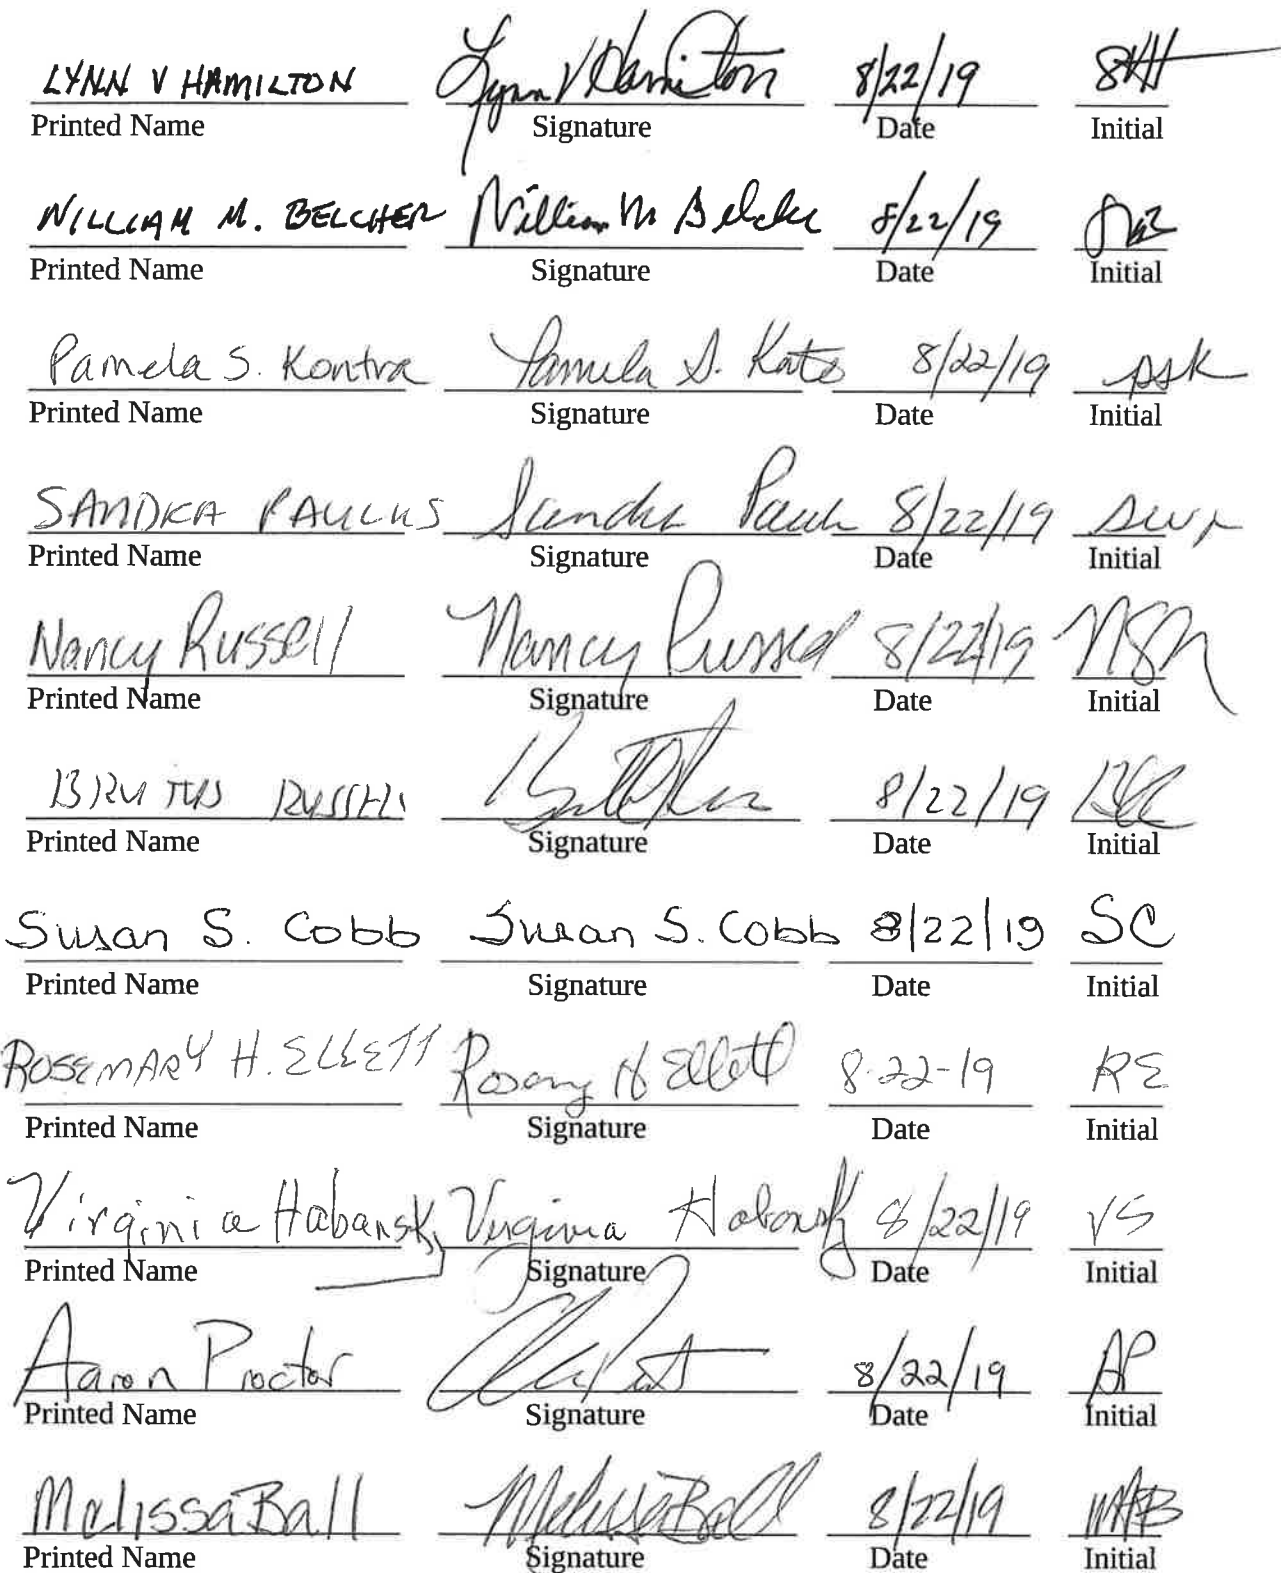 LYNN V HAMILTON Lynn V Hamilton 8/22/19
Printed Name Signature Date Initial
WILLIAM M. BELCHER William M Belcher 8/22/19
Printed Name Signature Date Initial
Pamela S. Kontra Pamela S. Kontra 8/22/19 psk
Printed Name Signature Date Initial
SANDRA PAULUS Sandra 8/22/19
Printed Name Signature Date Initial
Nancy Russell Nancy Russell 8/22/19
Printed Name Signature Date Initial
BRUTUS RUSSELL 8/22/19
Printed Name Signature Date Initial
Susan S. Cobb Susan S. Cobb 8/22/19 SC
Printed Name Signature Date Initial
ROSEMARY H. ELLETT Rosemary H Ellett 8-22-19 RE
Printed Name Signature Date Initial
Virginia Habansky Virginia Habansky 8/22/19 VS
Printed Name Signature Date Initial
Aaron Proctor 8/22/19 AP
Printed Name Signature Date Initial
Melissa Ball Melissa Ball 8/22/19 MAB
Printed Name Signature Date Initial